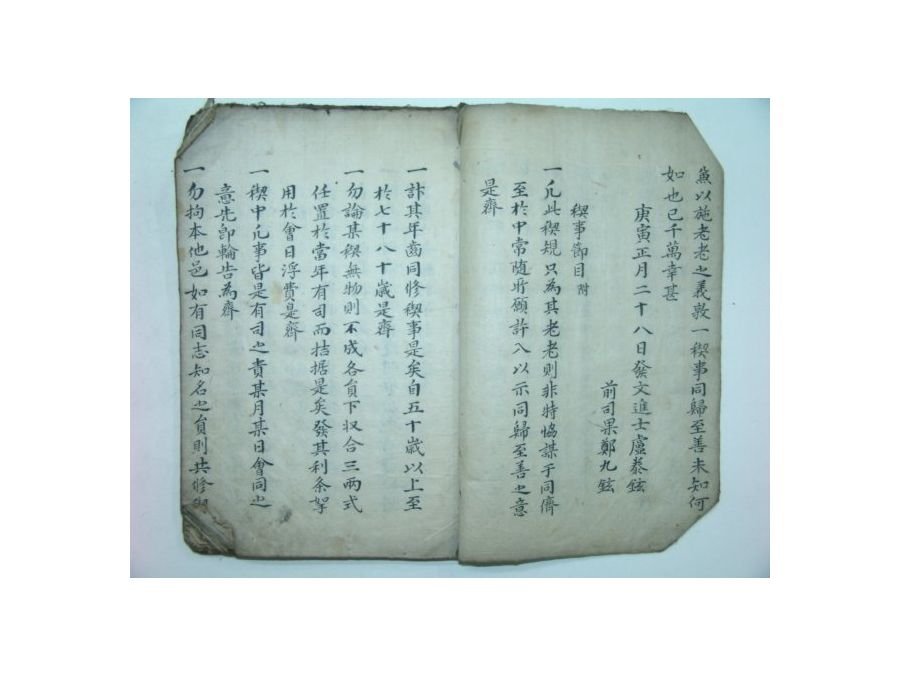 兼以施老老之義敦一稧事同歸至善未知何
如也已千萬幸甚
庚寅正月二十八日發文進士盧泰鉉
前司果鄭九鉉
稧事節目 附
一凡此稧規只為其老老則非特恊謀于同儕
至於中常随所願許入以示同歸至善之意
是齊
一計其年齒同修稧事是矣自五十歲以上至
於七十八十歲是齊
一勿論某稧無物則不成各員下収合三兩式
任置於當年有司而拮据是矣發其利条
用於會日浮費是齊
一稧中凡事皆是有司之責某月某日會同之
意先卽輪告為齊
一勿拘本他邑如有同志知名之員則共修稧